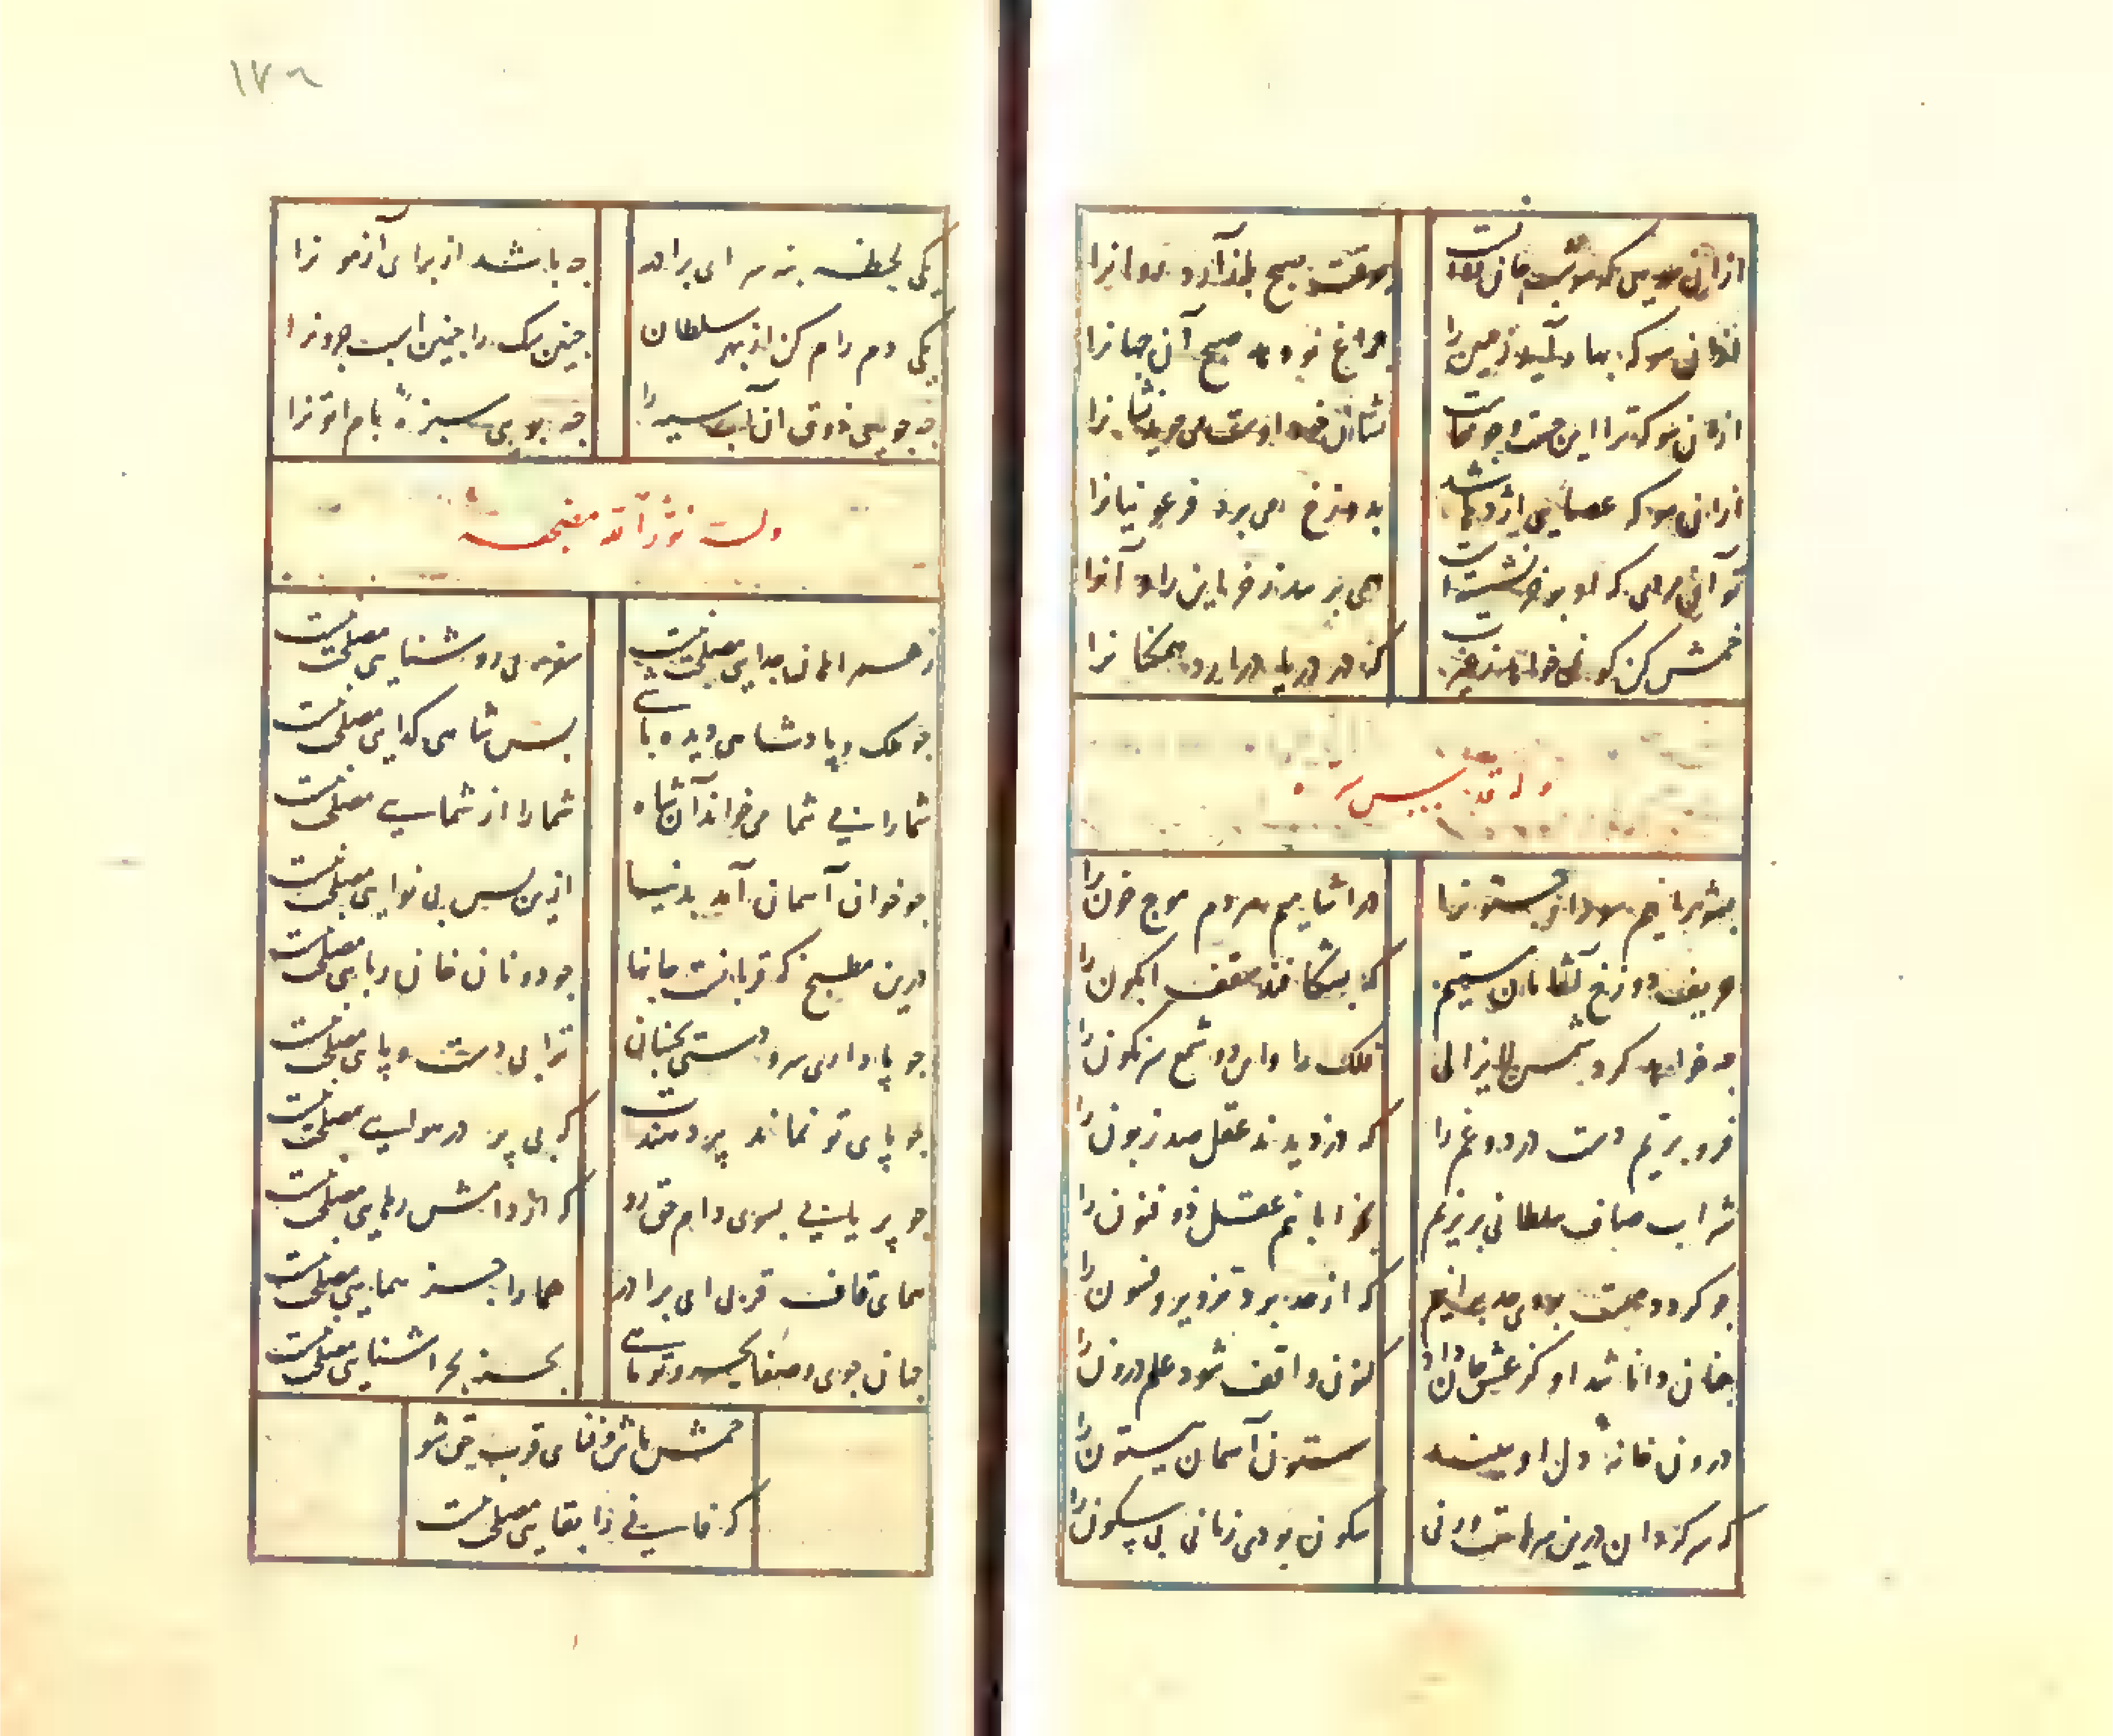 ازان سو که
بوقت صبح باز آرد روانرا
ازان سو که بهار آید زمین را
چراغ نو دهد صبح آن جهانرا
ازان سو که ترا این جست و جو خاست
نشان خود اوست می جوید نشانرا
ازان سو که عصایی اژدها شد
بدوزخ می برد فرعونیانرا
تو آن مردی که او بر خر نشست
همی پرسد ز خر این را و آنرا
خمش کن کو نمی خواهد ز غیرت
که در دریا درآرد همکنانرا
وله قدس سره
بشورانیم سودای
در آشامیم هر دم موج خون را
حریف دوزخ آشامان مستیم
که بشکافند سقف آبگون را
چه خواهد کرد شمع لایزالی
فلک را وین دو شمع سرنگون را
فرو بریم دست دزد غم را
که دزدیدند عقل صد زبون را
شراب صاف سلطانی بریزیم
بخوابانیم عقل ذو فنون را
چو گردد مست
که از حد برد تزویر و فسون را
چنان دانا شد او کز عیش
کنون واقف شود علم درون را
درون خانهٔ دل او ببیند
ستون آسمان بیستون را
که سرگردان درین سرهاست ورنی
سکون بودی زمانی بی سکون را
۱۷۶
یکی لحظه بنه سر ای برادر
چه باشد از برای آزمونرا
یکی دم رام کن از بهر سلطان
چنین سک را چنین اسب حرونرا
چه جویی ذوق این آب سیه را
چه بویی سبزهٔ بام تونرا
وله نور الله مضجعه
ز همراهان جدایی مصلحت نیست
سفر بی روشنایی مصلحت نیست
چو ملک و پادشاهی دیده باشی
پس شاهی گدایی مصلحت نیست
شما را بی شما می خواند آن شاه
شما را از شمایی مصلحت نیست
چو خوان آسمان آمد بدنیا
ازین پس بی نوایی مصلحت نیست
درین مطبخ که قربانست جانها
چو دونان نان ربایی مصلحت نیست
چو پا داری برو دستی بجنبان
ترا بی دست و پایی مصلحت نیست
چو پای تو نماند پر دهندت
که بی پر در هوایی مصلحت نیست
چو پر یابی بسوی دام حق رو
که از دامش رهایی مصلحت نیست
همای قاف قربی ای برادر
هما را جز همایی مصلحت نیست
جهان جوی و صفا بحر و تو ماهی
بجز بحر آشنایی مصلحت نیست
خمش باش و فنای قرب حق شو
که فانی را بقایی مصلحت نیست